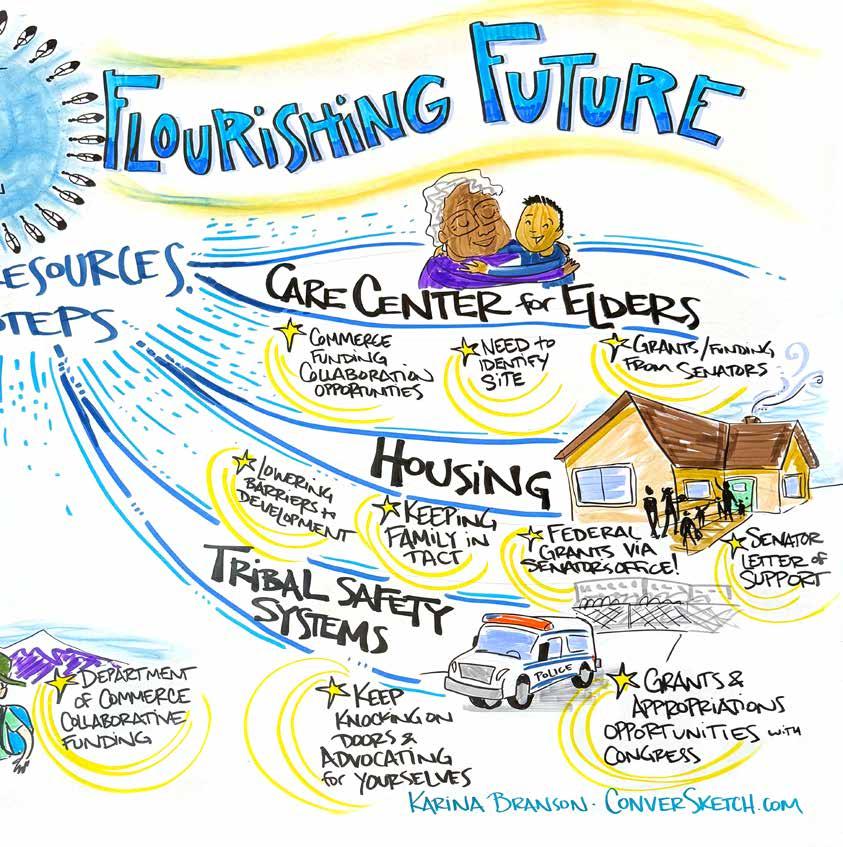 FLOURISHING FUTURE
ESOURCES,
STEPS
CARE CENTER for ELDERS
COMMERCE
FUNDING
COLLABORATION
OPPORTUNITIES
NEED to
IDENTIFY
SITE
GRANTS/FUNDING
FROM SENATORS
HOUSING
LOWERING
BARRIERS to
DEVELOPMENT
KEEPING
FAMILY IN
TACT
FEDERAL
GRANTS VIA
SENATORS OFFICE!
SENATOR
LETTER of
SUPPORT
TRIBAL SAFETY
SYSTEMS
POLICE
DEPARTMENT
of COMMERCE
COLLABORATIVE
FUNDING
KEEP
KNOCKING ON
DOORS &
ADVOCATING
for YOURSELVES
GRANTS &
APPROPRIATIONS
OPPORTUNITIES with
CONGRESS
KARINA BRANSON · CONVERSKETCH.COM